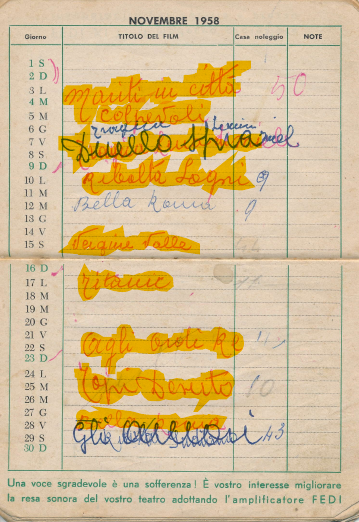 NOVEMBRE 1958
Giorno TITOLO DEL FILM Casa noleggio NOTE
1 S
2 D
3 L Mariti in città 50
4 M
5 M Colpevoli
6 G
7 V Duello
8 S
9 D
10 L Ribolta 9
11 M
12 M Bella Roma 9
13 G
14 V
15 S Vergine Valle
16 D
17 L Titanic
18 M
19 M
20 G
21 V
22 S agli ordini Re
23 D
24 L
25 M Topi Deserto 10
26 M
27 G
28 V
29 S Gli 43
30 D
Una voce sgradevole è una sofferenza! È vostro interesse migliorare
la resa sonora del vostro teatro adottando l'amplificatore FEDI